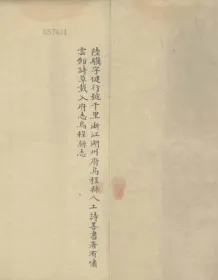 陸驥字健行號千里浙江湖州府烏程縣人工詩善書著有嘯
雲館詩草載入府志烏程縣志